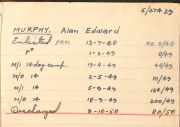 5/2704-29
MURPHY. Alan Edward
Enlisted PRM 13-7-48 RO.9/48
P° 1-2-49 8/49
M/I 14 day camp. 19-4-49 49/49
M/O 14 2-5-49 /49
M/I 14 5-9-49 164/49
M/O 14 18-9-49 200/49
Discharged 9-10-50 RO/50